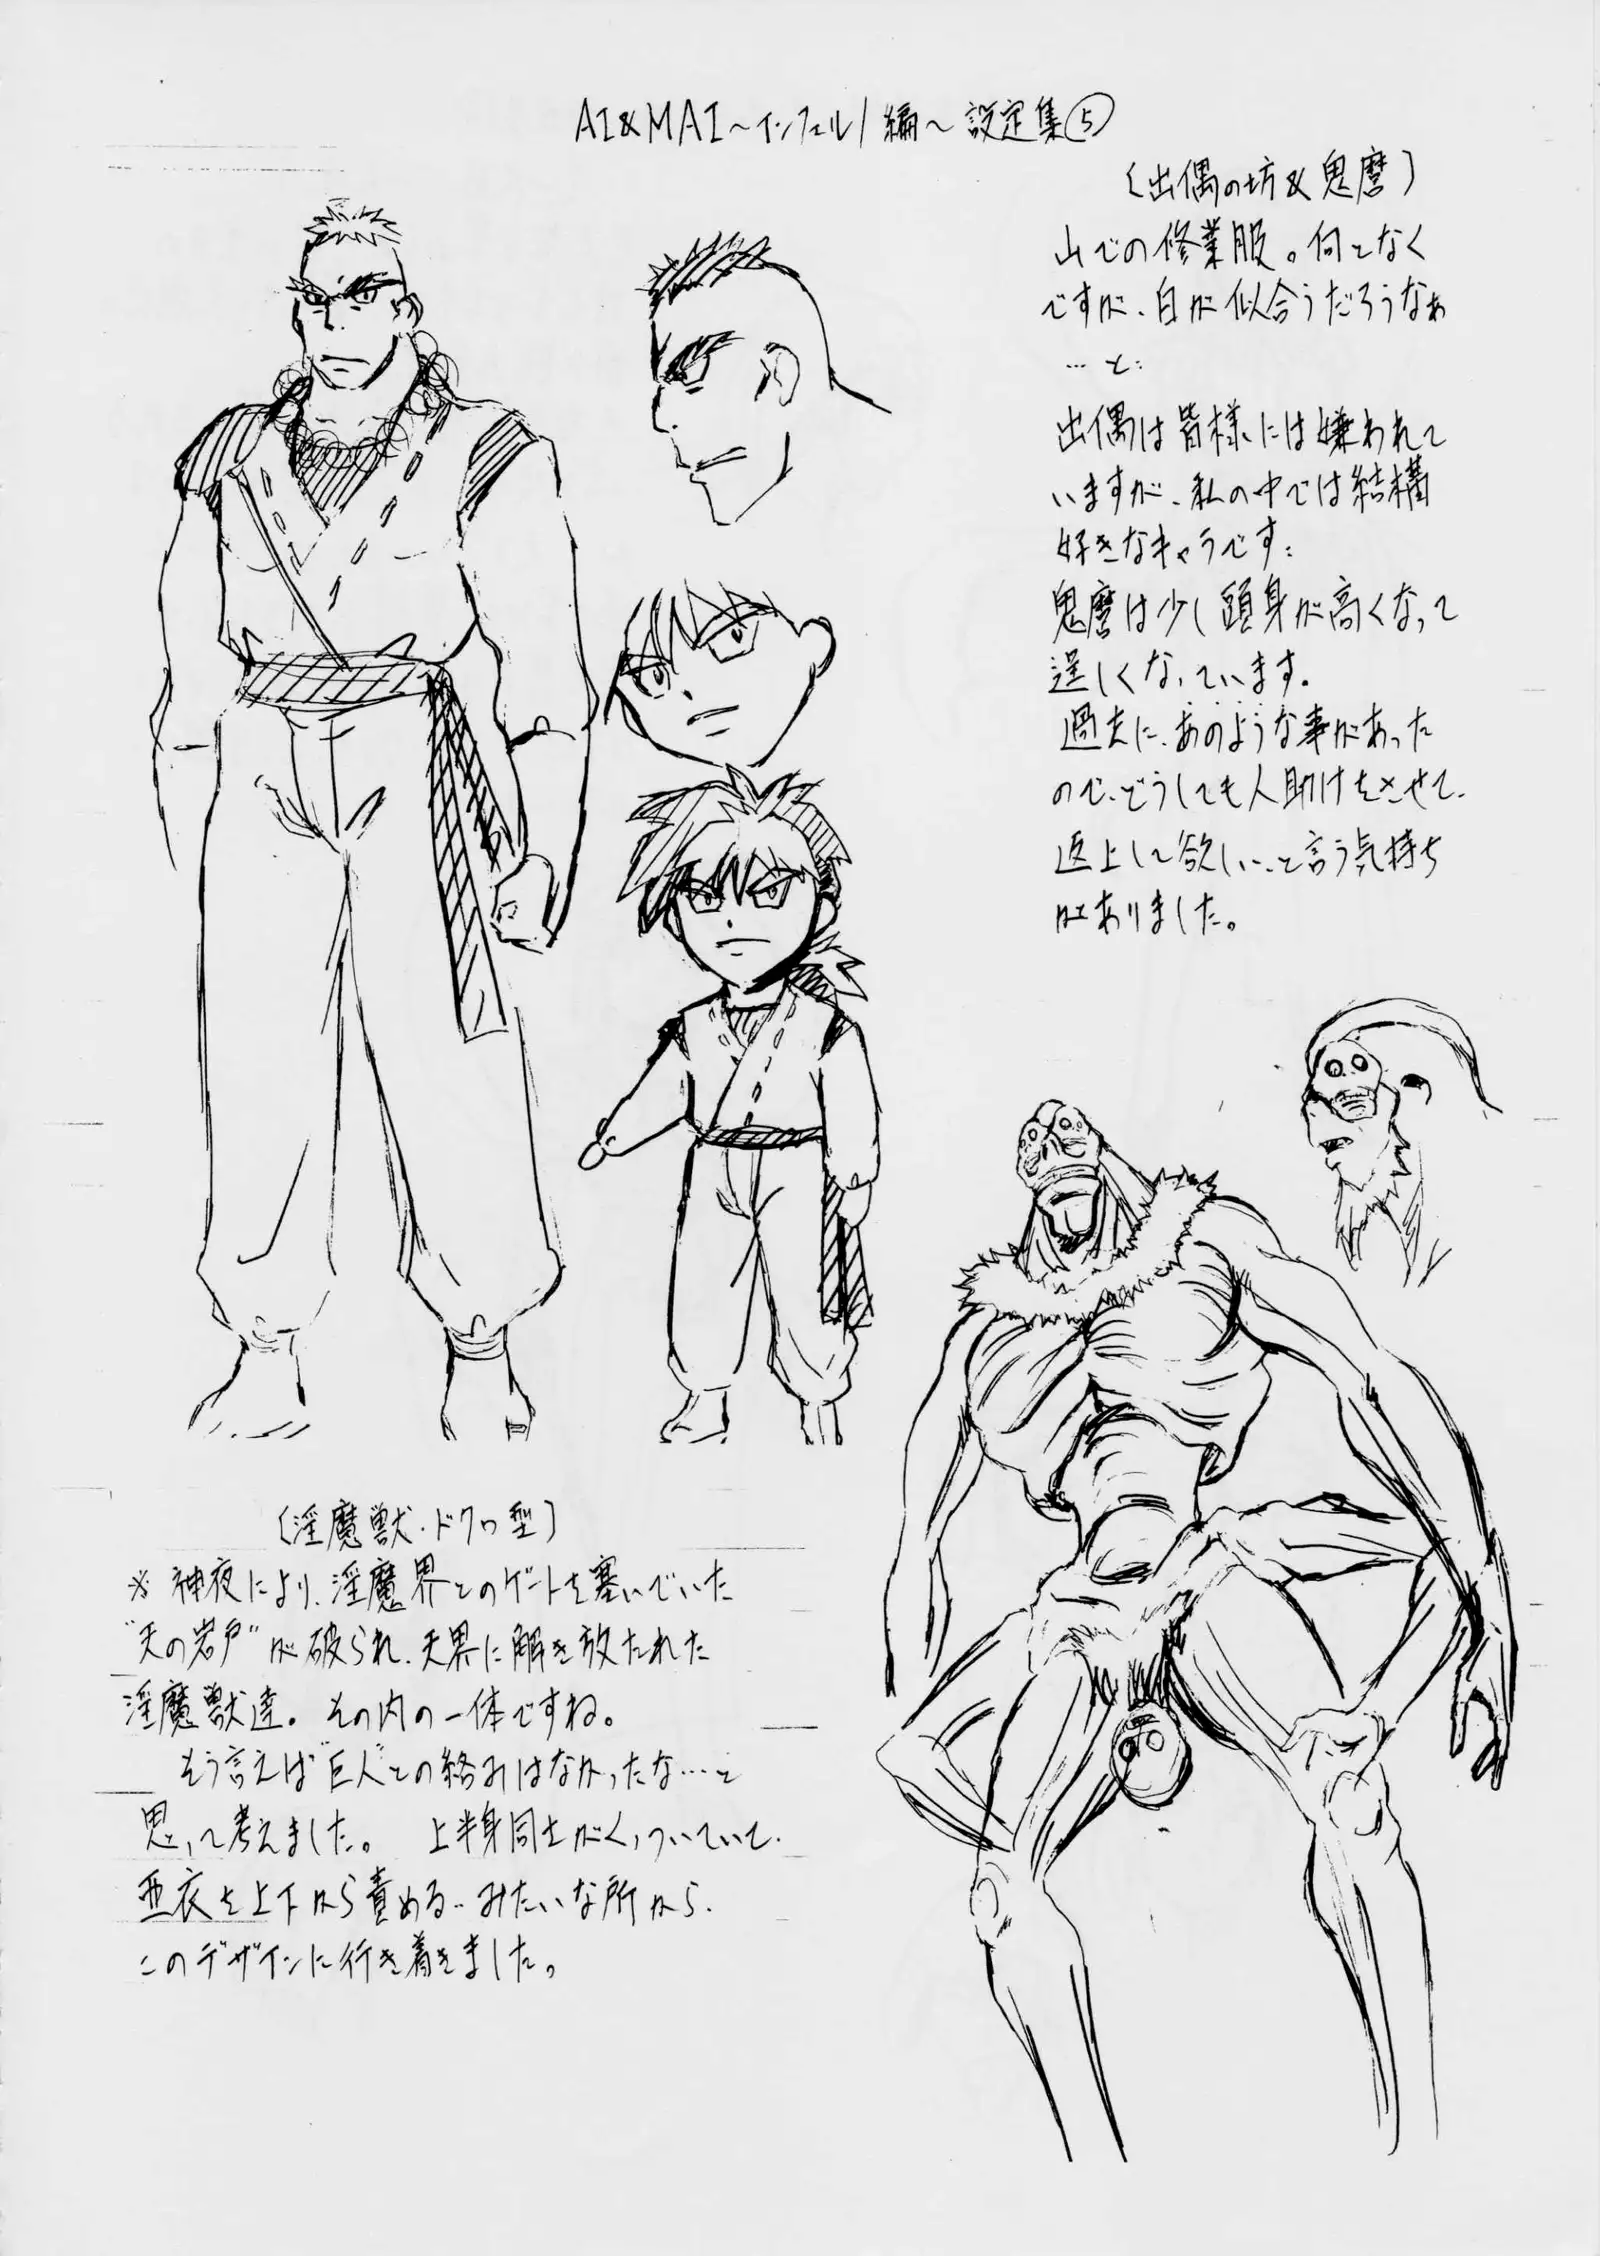 AI&MAI～インフェルノ編～設定集⑤
〔出偶の坊&鬼麿〕
山での修業服。何となく
ですが、白が似合うだろうなぁ
…と…
出偶は皆様には嫌われて
いますが、私の中では結構
好きなキャラです…
鬼麿は少し頭身が高くなって
逞しくなっています。
過去に、あのような事があった
ので、どうしても人助けをさせて、
返上して欲しい…と言う気持ち
はありました。
〔淫魔獣・ドクロ型〕
※神夜により、淫魔界とのゲートを塞いでいた
"天の岩戸"が破られ、天界に解き放たれた
淫魔獣達。その内の一体ですね。
そう言えば"巨人"との絡みはなかったな…と
思って考えました。上半身同士がくっついていて、
亜衣を上下から責める…みたいな所から、
このデザインに行き着きました。